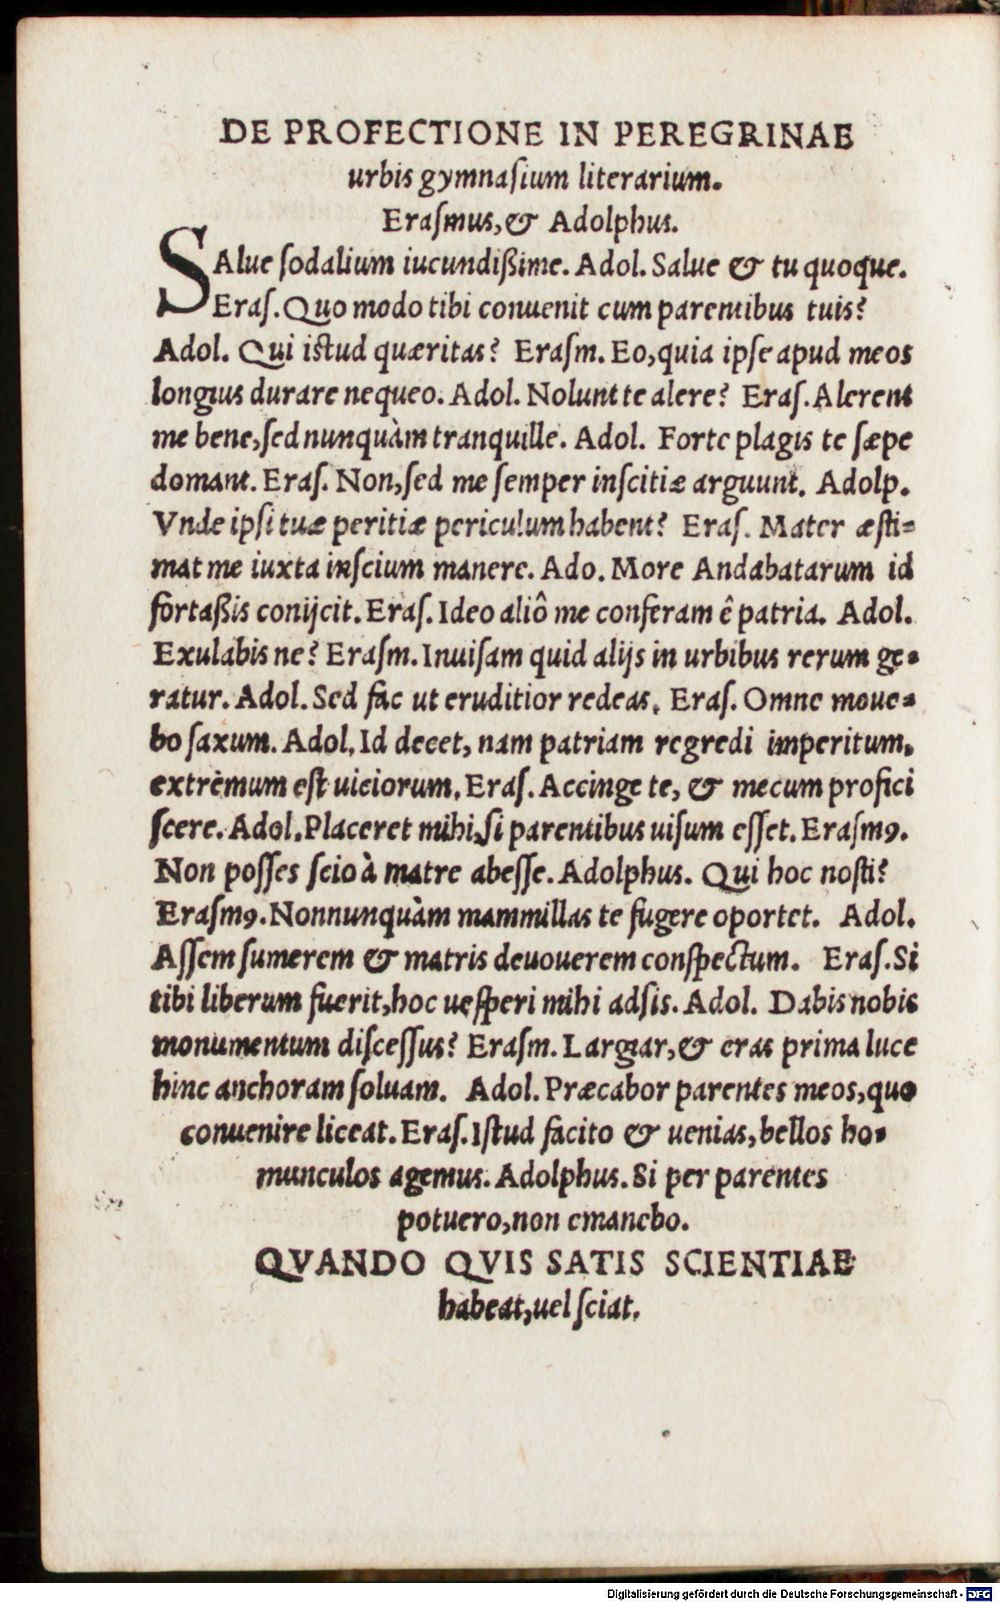 DE PROFECTIONE IN PEREGRINAE
urbis gymnaſium literarium.
Eraſmus, & Adolphus.
SAlue ſodalium iucundißime. Adol. Salue & tu quoque.
Eraſ. Quo modo tibi conuenit cum parentibus tuis?
Adol. Qui iſtud quæritas? Eraſm. Eo, quia ipſe apud meos
longius durare nequeo. Adol. Nolunt te alere? Eraſ. Alerent
me bene, ſed nunquàm tranquille. Adol. Forte plagis te ſæpe
domant. Eraſ. Non, ſed me ſemper inſcitiæ arguunt. Adolp.
Vnde ipſi tuæ peritiæ periculum habent? Eraſ. Mater æſti-
mat me iuxta inſcium manere. Ado. More Andabatarum id
fortaßis conijcit. Eraſ. Ideo aliô me conferam ê patria. Adol.
Exulabis ne? Eraſm. Inuiſam quid alijs in urbibus rerum ge-
ratur. Adol. Sed fac ut eruditior redeas. Eraſ. Omne moue-
bo ſaxum. Adol. Id decet, nam patriam regredi imperitum,
extrèmum eſt uiciorum. Eraſ. Accinge te, & mecum profici
ſcere. Adol. Placeret mihi, ſi parentibus uiſum eſſet. Eraſmꝯ.
Non poſſes ſcio à matre abeſſe. Adolphus. Qui hoc noſti?
Eraſmꝯ. Nonnunquàm mammillas te fugere oportet. Adol.
Aſſem ſumerem & matris deuouerem conſpectum. Eraſ. Si
tibi liberum fuerit, hoc ueſperi mihi adſis. Adol. Dabis nobis
monumentum diſceſſus? Eraſm. Largiar, & cras prima luce
hinc anchoram ſoluam. Adol. Præcabor parentes meos, quo
conuenire liceat. Eraſ. Iſtud facito & uenias, bellos ho-
munculos agemus. Adolphus. Si per parentes
potuero, non emanebo.
QVANDO QVIS SATIS SCIENTIAE
habeat, uel ſciat.
Digitalisierung gefördert durch die Deutsche Forschungsgemeinschaft - DFG